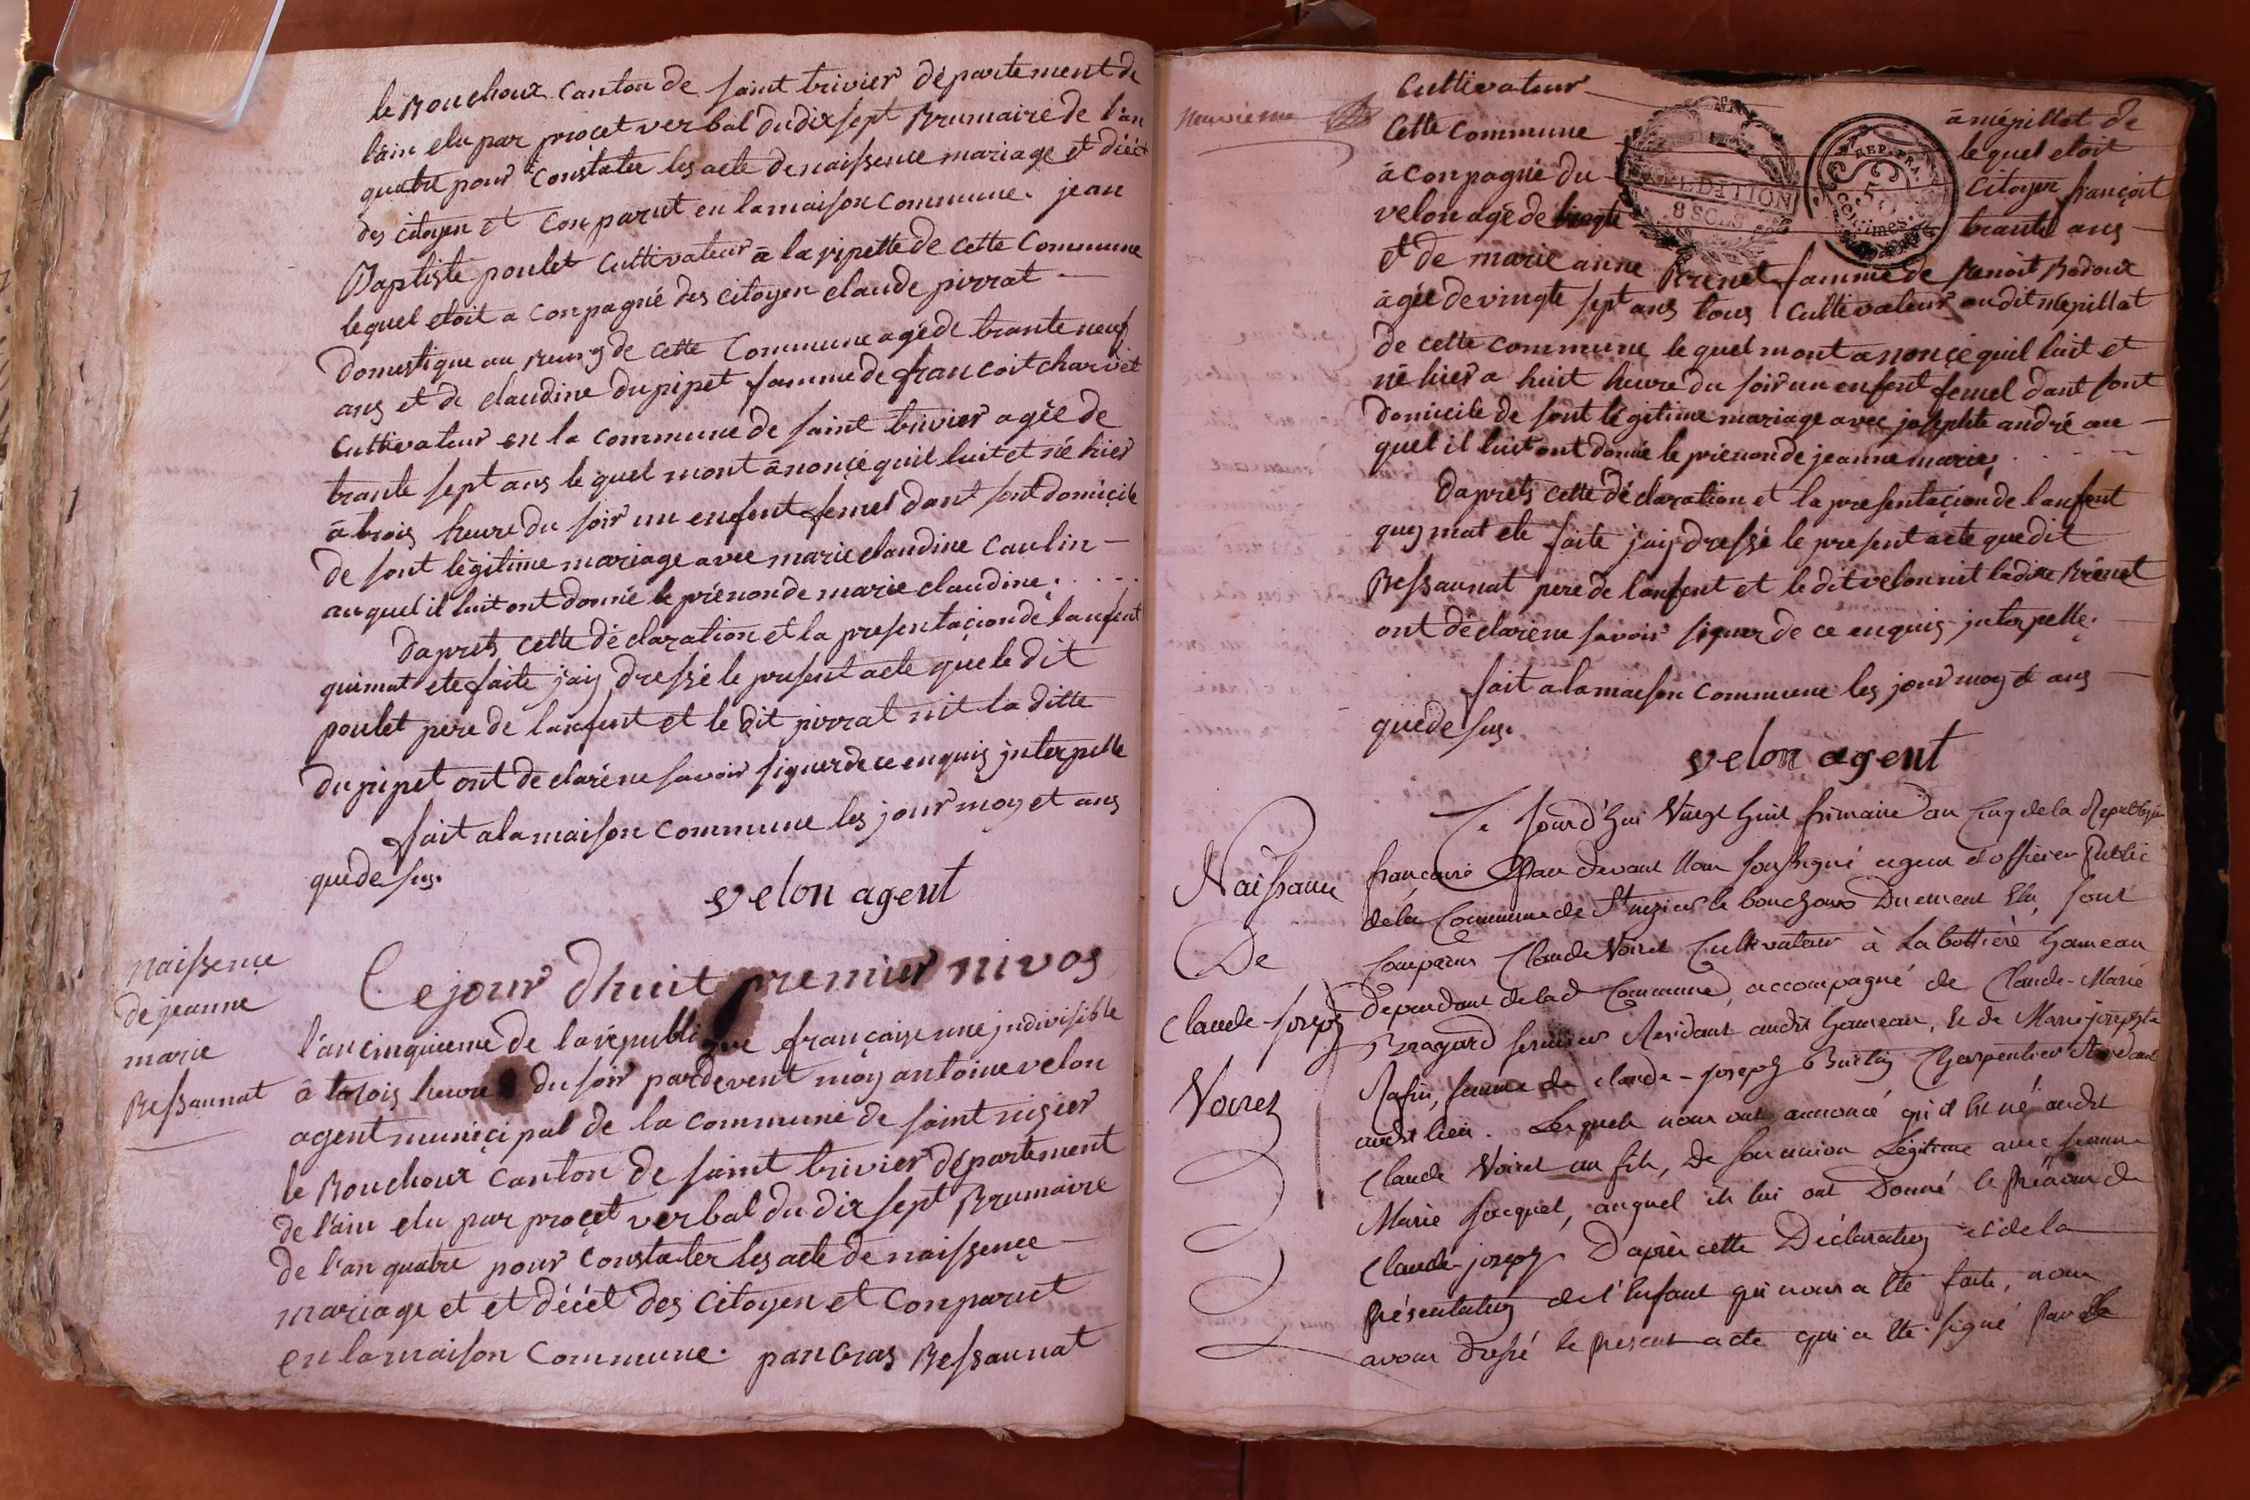 le Bouchoux Canton de saint trivier département de
l'ain elu par proçet verbal du dix sept Brumaire de l'an
quatre pour Constater les acte de naissence mariage et décét
des citoyen et Conparut en la maison Commune. jean
Baptiste poulet cultivateur a la ripette de cette Commune
lequel etoit a conpagné des citoyen claude pirrat
domestique au Bourg de cette Commune agé de trante neuf
ans et de claudine dupipet famme de francoit charvet
cultivateur en la commune de saint trivier agée de
trante sept ans le quel mont anonçé quil luit et né hier
a trois heure du soir un enfent femel dant sont domiçile
de sont légitime mariage avec marie claudine Caulin
auquel il luit ont donné le prénon de marie claudine.
daprets cette déclaration et la presentaçion de lanfent
qui mat ete faite jaiy dressé le present acte que le dit
poulet pere de lanfent et le dit pirrat nit la ditte
dupipet ont declaré ne savoir signer de ce enquis jnterpelle
fait a la maison commune les jour moy et ans
que de sus.
velon agent
naissençe
de jeanne
marie
Bessaunat
Ce jour dhuit premier nivos
l'an cinquieme de la république françaisse une jndivisible
a trois heure du soir pardevent moy antoine velon
agent muniçipal de la commune de saint nisier
le Bouchoux canton de saint trivier département
de l'ain elu par proçet verbal du dix sept Brumaire
de l'an quatre pour Constater les acte de naissençe
mariage et et décét des Citoyen et Conparut
en la maison Commune. pancras Bessaunat
neuvième
cultivateur a mépillat de
Cette commune lequel etoit
a conpagné du Citoyen françoit
velon agé de trante ans
et de marie anne Brenet famme de Benoit Bodoux
agée de vingte sept ans tous Cultivateur au dit mépillat
de cette commune le quel mont anonçé quil luit et
né hier a huit heure du soir un enfent femel dant sont
domicile de sont légitime mariage avec josephte andré au
quel il luit ont donné le prénon de jeanne marie,
daprets cette déclaration et la presentaçion de lanfent
quy mat ete faite jaiy dressé le present acte que dit
Bessaunat pere de lanfent et le dit velon nit ladite Brenet
ont déclaré ne savoir signer de ce enquis jnterpelle.
fait a la maison commune les jour moy et ans
que de sus.
velon agent
Naissance
De
Claude-joseph
Voiret
Ce jourd'hui Vingt huit frimaire an Cinq de la Republique
francaise Par devant Nous soussigné agent et officier Public
de la Commune de St nizier le bouchoux Duement Elu, sont
Comparus Claude Voiret Cultivateur à La bottière hameau
dependant de lad Commune, accompagné de Claude-Marie
Bragard fermier Residant audit hameau, et de Marie josephte
Rafin, femme de claude-joseph Burtin Charpentier Residant
audit lieu. Lesquels nous ont annoncé qu'il est né audit
Claude Voiret un fils, de son union Légitime avec jeanne
Marie Jacquet, auquel ils lui ont Donné le Prénom de
Claude-joseph D'après cette Déclaration et de la
Présentation de l'Enfant qui nous a été faite, nous
avons dressé le present acte qui a été signé Par le
EXPEDITION
8 SOLS
REP. FRA.
50
CENTIMES